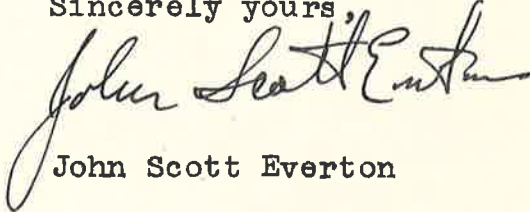 Sincerely yours,
John Scott Everton
John Scott Everton